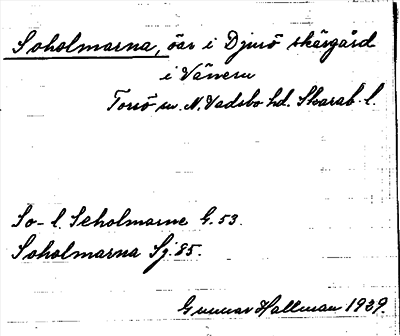 Soholmarna, öar i Djurö skärgård
i Vänern
Torsö sn. N. Vadsbo hd. Skarab. l.
So- l. Seholmarne G. 53.
Soholmarna Sj. 85.
Gunnar Hallman 1939.